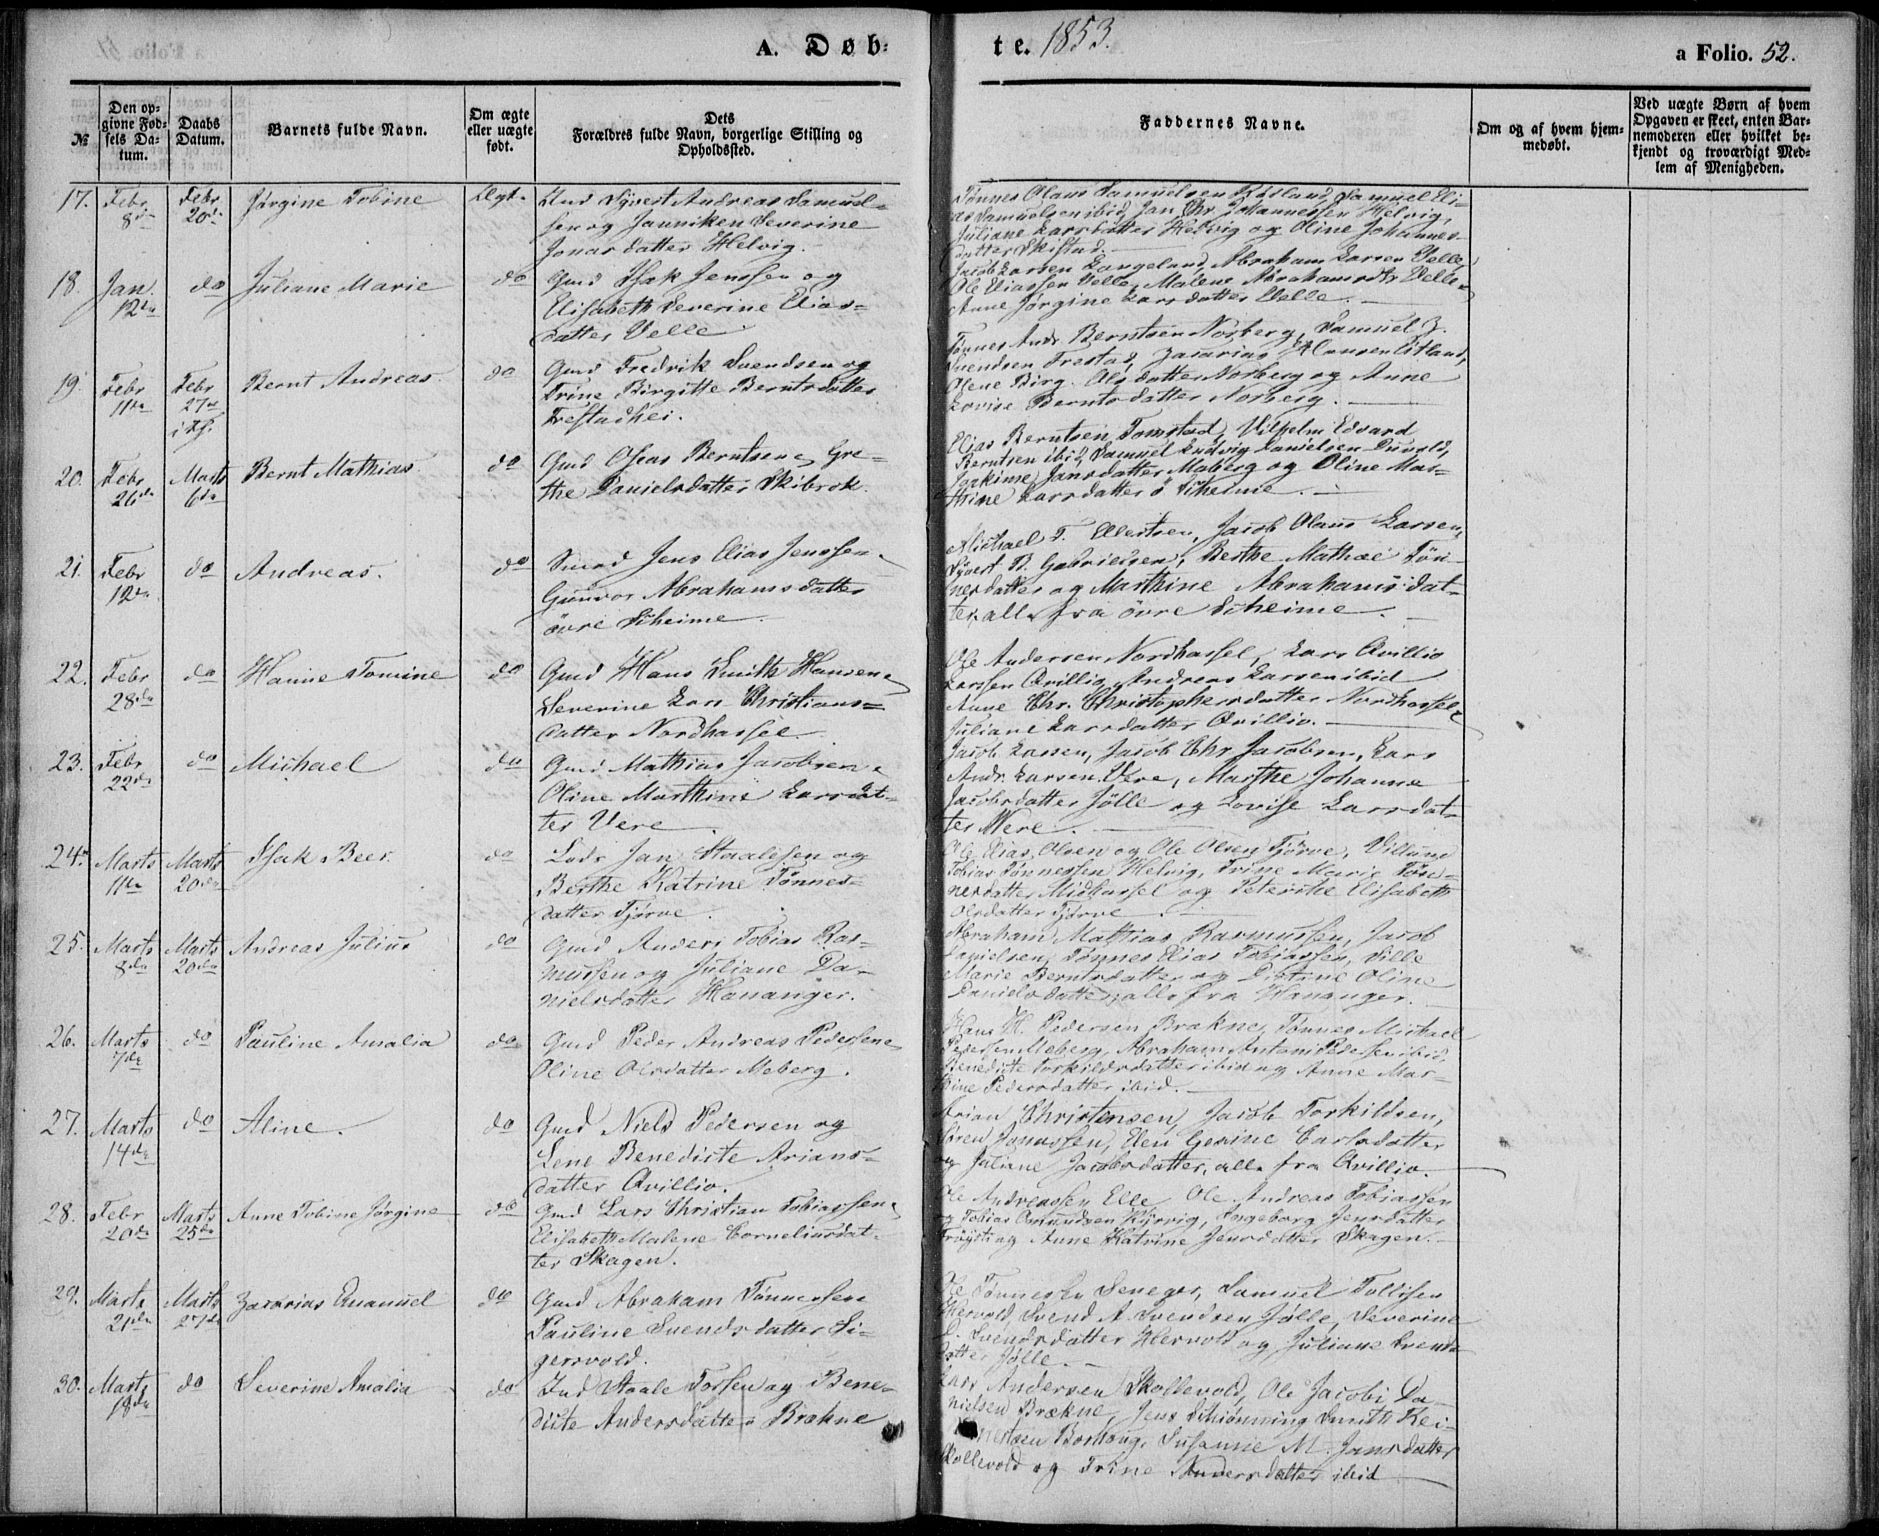 A. Døb-
te. 1853.
a Folio. 52.
№
Den op-
givne Fød-
sels Da-
tum.
Daabs
Datum.
Barnets fulde Navn.
Om ægte
eller uægte
født.
Dets
Forældres fulde Navn, borgerlige Stilling og
Opholdssted.
Faddernes Navne.
Om og af hvem hjem-
medøbt.
Ved uægte Børn af hvem
Opgaven er skeet, enten Bar-
nemoderen eller hvilket be-
kjendt og troværdigt Med-
lem af Menigheden.
17. Febr 8de
Febr 20de
Jørgine Tobine
Ægt.
Ind Syvert Andreas Samuel-
sen og Janniken Severine
Jonasdatter Helvig.
Tønnes Olaus Samuelsen Samuel Eli-
as Samuelsen ibid, Jan Chr. Johannessen Helvig,
Juliane Larsdatter Helvig og Oline Johannes-
datter Skistad.
18. Jan. 12te
do
Juliane Marie
do
Gmd Isak Jenssen og
Elisabeth Severine Elias-
datter Velle
Jacob Larsen Langeland, Abraham Larsen Velle,
Ole Eliassen Velle, Malene Abrahamsdtr Velle
Anne Jørgine Larsdatter Velle.
19. Febr 11te
Febr 27de
Bernt Andreas.
do
Gmd Fredrik Svendsen og
Trine Birgitte Berntsdatter
Frestadhei.
Tønnes Andr. Berntsen Norberg, Samuel Z.
Svendsen Frestad, Zacarias Hansen Etland,
Olene Birg. Olsdatter Norberg og Anne
Lovise Berntsdatter Norberg.
20. Febr 26de
Marts 6te
Bernt Mathias
do
Gmd Oseas Berntsen, Gre-
the Danielsdatter Skibrok.
Elias Berntsen Tomstad, Vilhelm Edvard
Berntsen ibid, Samuel Ludvig Danielsen
Joakime Jansdatter Maberg og Oline Mar-
thine Larsdatter ö Siheime.
21. Febr 12te
do
Andreas.
do
Smed Jens Elias Jenssen
Gunvor Abrahamsdatter
övre Siheime.
Michael T. Ellertsen, Jacob Olaus Larsen,
Syvert B. Gabrielsen, Berthe Mathæa Tön-
nesdatter og Marthine Abrahamsdat-
ter, alle fra övre Siheime.
22. Febr 28de
do
Hanne Tomine
do
Gmd Hans Smith Hansen
Severine Lars Christians-
datter Nordhassel
Ole Andersen Nordhassel, Lars Qvillio
Larssen Qvillio, Andreas Larsen ibid
Anne Chr. Christophersdatter Nordhassel
Juliane Larsdatter Qvillio.
23. Febr 22de
do
Michael
do
Gmd Mathias Jacobsen
Oline Marthine Larsdat-
ter Vere
Jacob Larsen, Jacob Chr. Jacobsen, Lars
Andr. Larsen Vere, Marthe Johanna
Jacobsdatter Jölle og Lovise Larsdat-
ter Vere.
24. Marts 11te
Marts 20de
Isak Beer.
do
Lods Jan Staalesen og
Berthe Katrine Tönnes-
datter Tjörve.
Ole Elias Olsen og Ole Olsen Tjörve, Villum
Tobias Tönnessen Helvig, Trine Marie Tön-
nesdatter Midhassel og Peterike Elisabeth
Olsdatter Tjörve
25. Marts 8de
Marts 20de
Andreas Julius
do
Gmd Anders Tobias Ras-
mussen og Juliane Da-
nielsdatter Hananger.
Abraham Mathias Rasmussen, Jacob
Danielsen, Tönnes Elias Tobiassen, Sille
Marie Berntsdatter og Distine Oline
Danielsdatter, alle fra Hananger.
26. Marts 7de
do
Pauline Amalia
do
Gmd Peder Andreas Pedersen
Oline Olsdatter Meberg.
Hans H. Pedersen Brakne, Tönnes Michael
Pedersen Meberg, Abraham Antoni Pedersen ibid
Benedicte Torkildsdatter ibid og Anne Mar-
thine Pedersdatter ibid.
27. Marts 14de
do
Aline.
do
Gmd Niels Pedersen og
Lene Benedicte Arians-
datter Qvillio.
Arian Christensen, Jacob Torkildsen,
Sören Jonassen, Elen Gesine Carlsdatter
og Juliane Jacobsdatter, alle fra Qvillio.
28. Febr 20de
Marts 25de
Anne Tobine Jørgine
do
Gmd Lars Christian Tobiassen
Elisabeth Malene Corneliusdat-
ter Skagen.
Ole Andreassen Elle, Ole Andreas Tobiassen
og Tobias Omundsen Kjörvig, Ingeborg Jensdatter
og Anne Katrine Jensdatter Skagen.
29. Marts 21de
Marts 27de
Zacarias Emanuel
do
Gmd Abraham Tönnessen
Pauline Svendsdatter Si-
gersvold.
Ole Tönnessen Seneger, Samuel Tollisen
Hervold, Svend A Svendsen Jölle, Severine
S. Svendsdatter Hervold og Juliane Svends-
datter Jölle.
30. Marts 18de
do
Severine Amalia
do
Ind Staale Torsen og Bene-
dicte Andersdatter Brakne
Lars Andersen Skollevold, Ole Jacobi Da-
nielsen Brækne, Jens Schiönning Smith Rei-
nertsen Borhaug, Susanne M. Jansdatter
Skollevold og Trine Andersdatter ibid